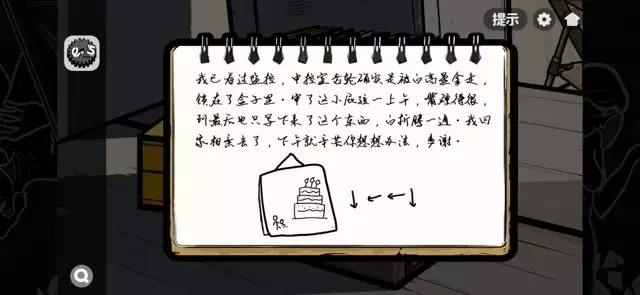 提示
我已看过监控，中控室齿轮确实是被白高基拿走，
锁在了盒子里。审了这小屁孩一上午，嘴硬得很，
到最后也只写下来了这个东西，白折腾一通。我回
家相亲去了，下午就辛苦你想想办法，多谢。
↓←←↓